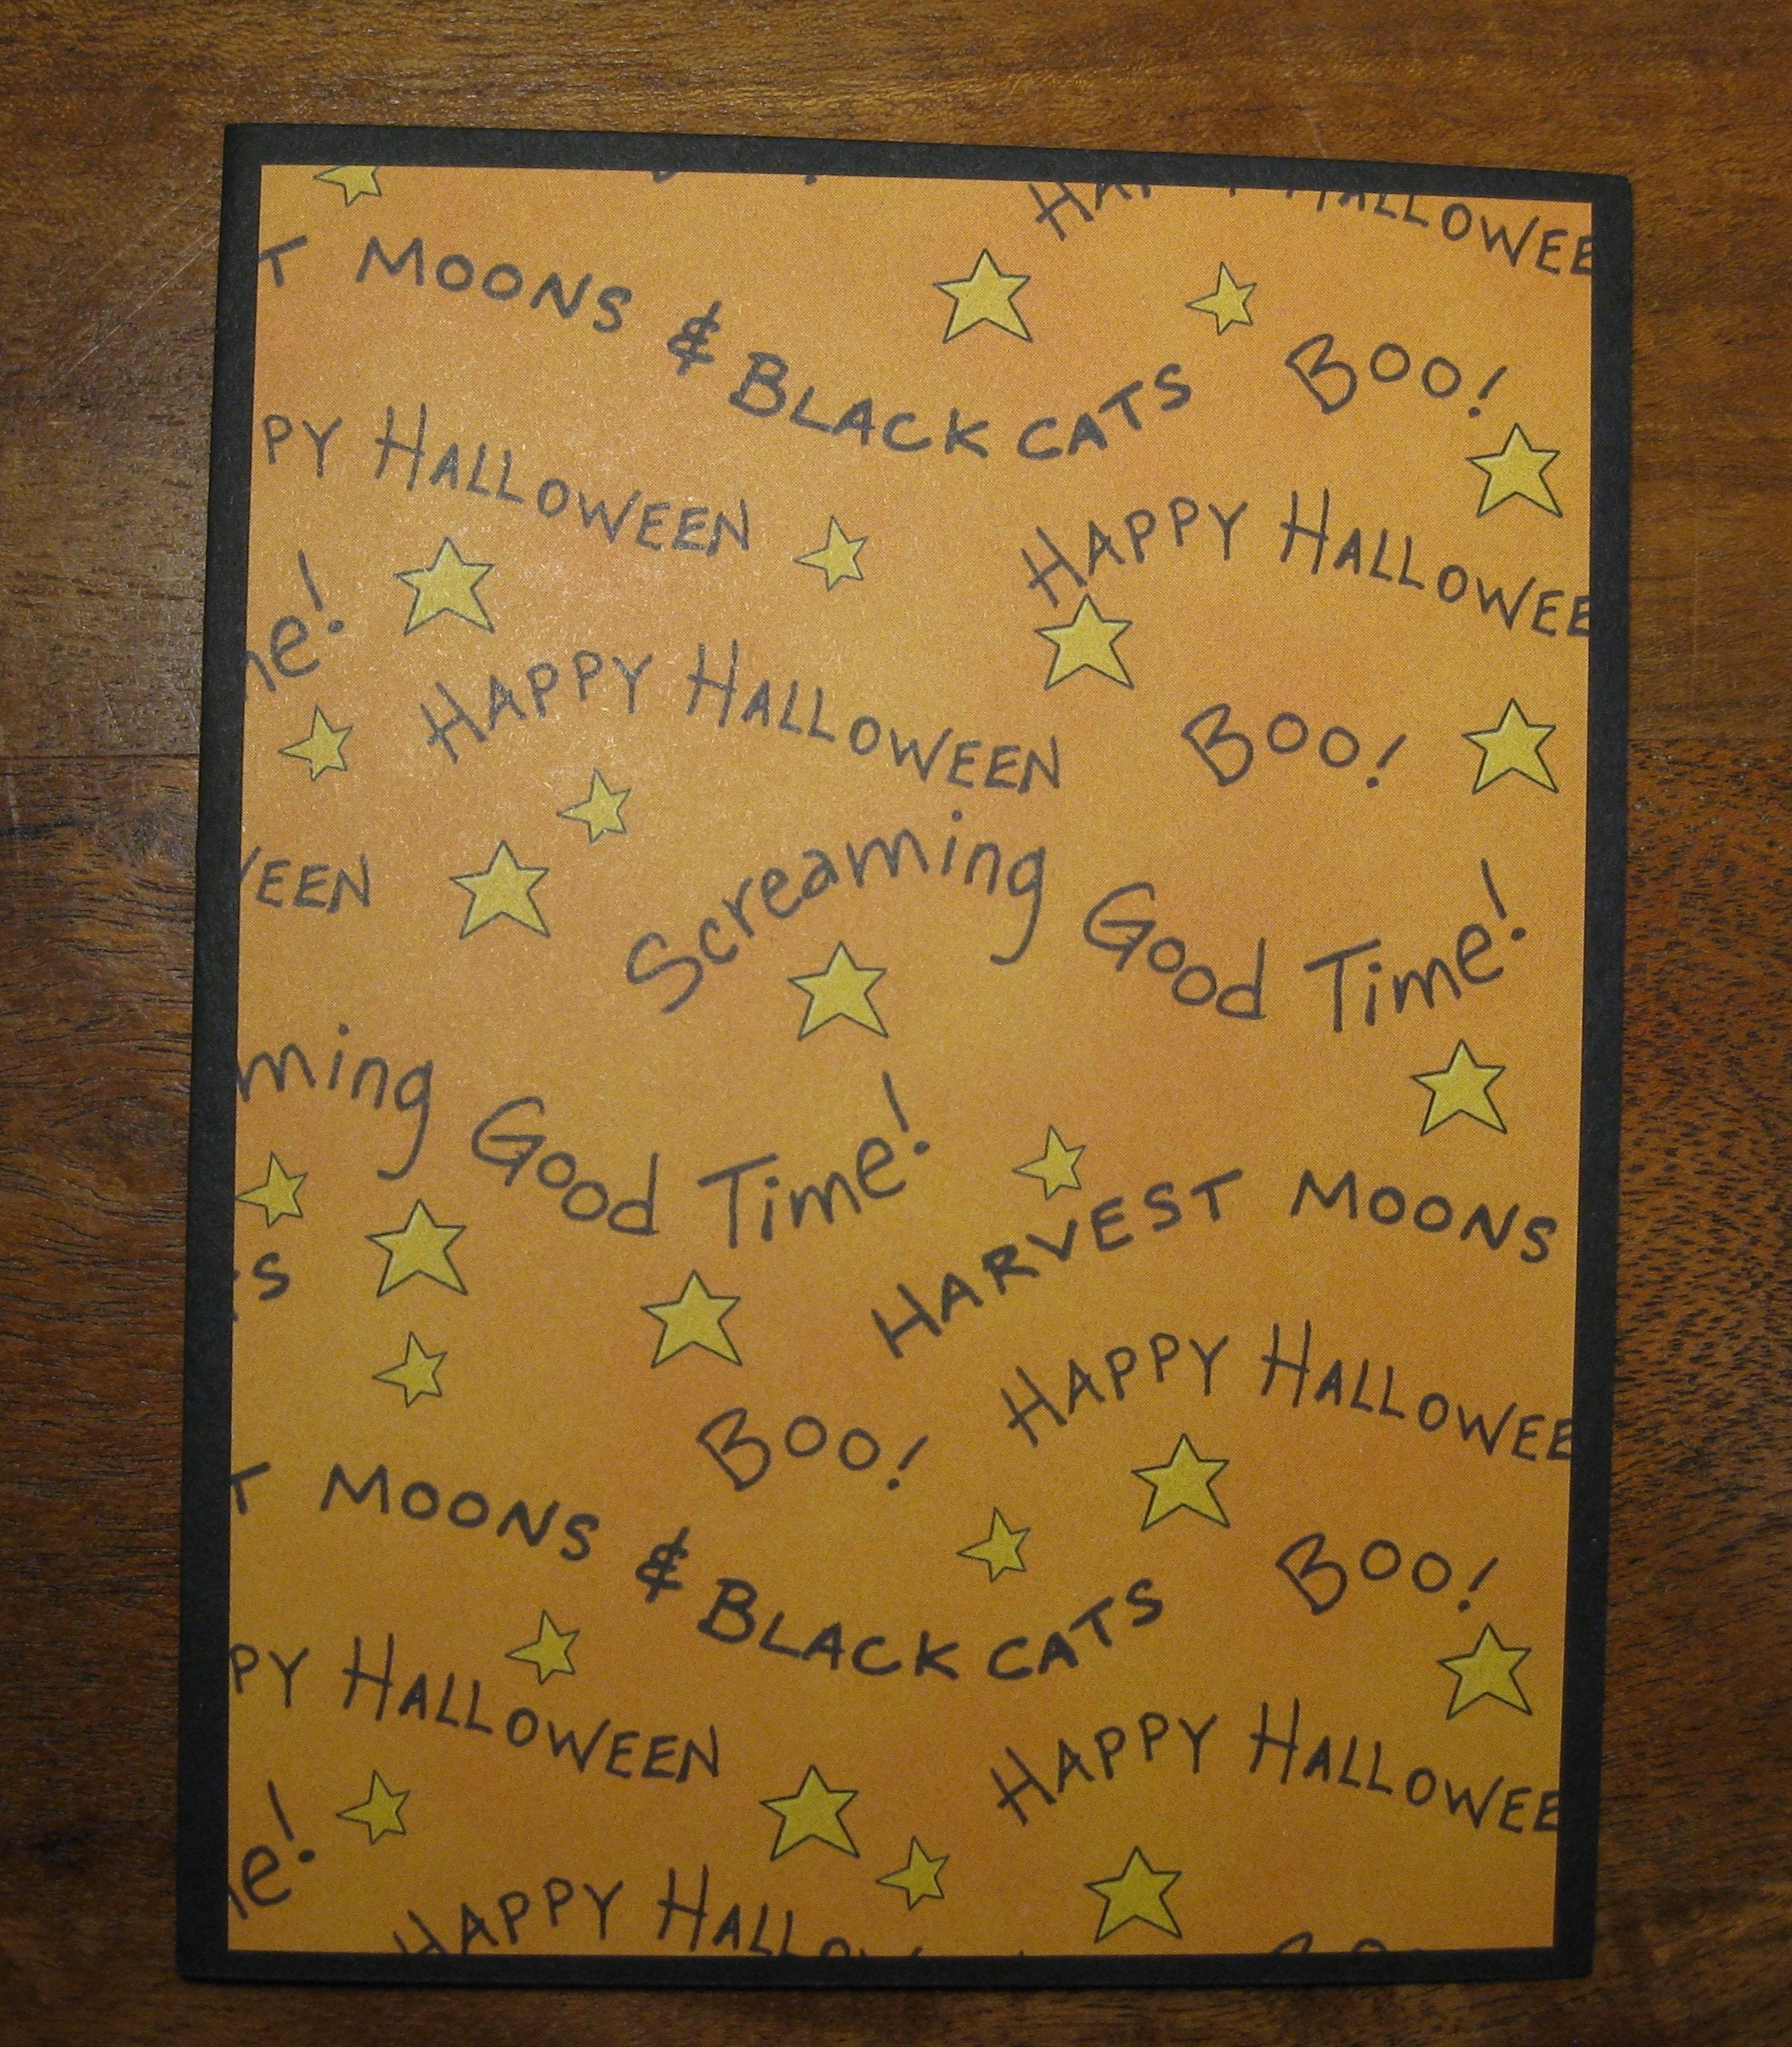 HAPPY HALLOWEE
T MOONS & BLACK CATS
BOO!
PY HALLOWEEN
HAPPY HALLOWEE
ne!
HAPPY HALLOWEEN
BOO!
EEN
Screaming Good Time!
ming Good Time!
HARVEST MOONS
S
HAPPY HALLOWEE
BOO!
T MOONS & BLACK CATS
BOO!
PY HALLOWEEN
HAPPY HALLOWEE
e!
HAPPY HALLO